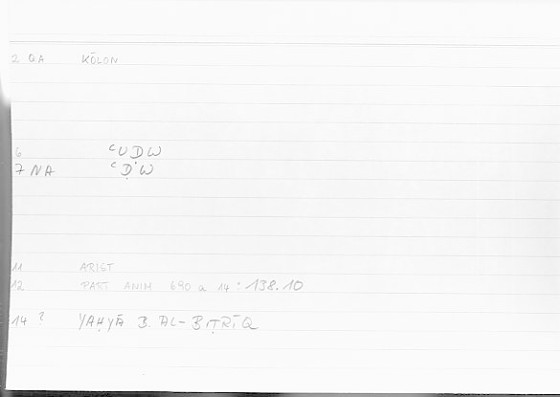 2 QA KŌLON
6 ʿUDW
7 NA ʿḌW
11 ARIST
12 PART ANIM 690 a 14 : 138.10
14 ? YAḤYĀ B. AL-BIṬRĪQ